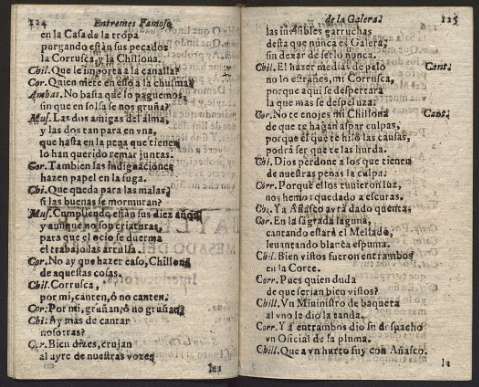 224 Entremes Famoso
en la Casa de la tropa
purgando estàn sus pecados
la Corrusca, y la Chillona.
Chil. Que le importa a la canalla?
Cor. Quien mete en esso a la chusma?
Ambas. No basta que lo paguemos
sin que en solfa se nos gruña?
Mus. Las dos amigas del alma,
y las dos tan para en vna,
que hasta en la pena que tienen
lo han querido remar juntas.
Cor. Tambien las indignaciones
hazen papel en la fuga.
Chi. Que queda para las malas,
si las buenas se mormuran?
Mus. Cumpliendo estàn sus diez años
y aunque no son criaturas,
para que el ocio se duerma
el trabajo las arrulla.
Cor. No ay que hazer caso, Chillona
de aquestas cosas.
Chil. Corrusca,
por mi, canten, ò no canten.
Cor. Por mi, gruñan, ò no gruñan
Chi. Ay mas de cantar
nosotras?
Cor. Bien dizes, crujan
al ayre de nuestras vozes
las
de la Galera. 225
las invisibles garruchas
desta que nunca es Galera,
sin dexar de serlo nunca.
Chill. El hazer medias de pelo Cant.
no lo estrañes, mi Corrusca,
porque aqui se despertarà
la que mas se despeluza.
Cor. No te enojes mi Chillona Cant.
de que te hagan aspar culpas,
porque el que te hilò las causas,
podrà ser que te las hurda.
Chi. Dios perdone a los que tienen
de nuestras penas la culpa:
Corr. Porque ellos tuuieron luz,
nos hemos quedado a escuras.
Chi. Ya Añasco avrà dado quenta,
Cor. En la sagrada laguna,
cantando estarà el Mellado,
leuantando blanca espuma.
Chil. Bien vistos fueron entrambos
en la Corte.
Corr. Pues quien duda
de que serian bien vistos?
Chill. Vn Ministro de baqueta
al vno le diò la tunda.
Corr. Ya entrambos dio su despacho
vn Oficial de la pluma.
Chill. Que a vn hurto fuy con Añasco.
la